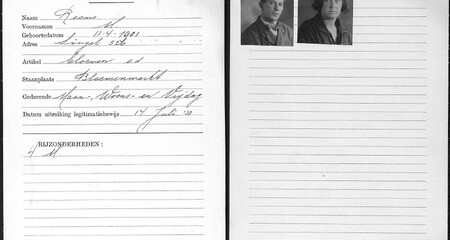 Naam Reens
Voornamen M
Geboortedatum 11-4-1901
Adres Singel 526
Artikel bloemen ed
Staanplaats Bloemenmarkt
Gedurende Maan-, Woens- en Vrijdag
Datum uitreiking legitimatiebewijs 14 Juli '30
BIJZONDERHEDEN: